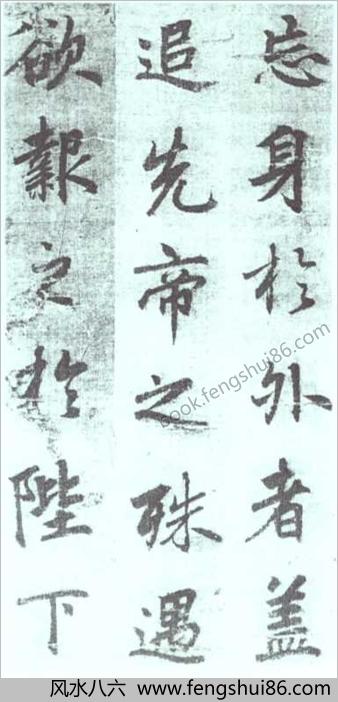 忘身於外者盖
追先帝之殊遇
欲報之於陛下
book.fengshui86.com
风水八六 www.fengshui86.com